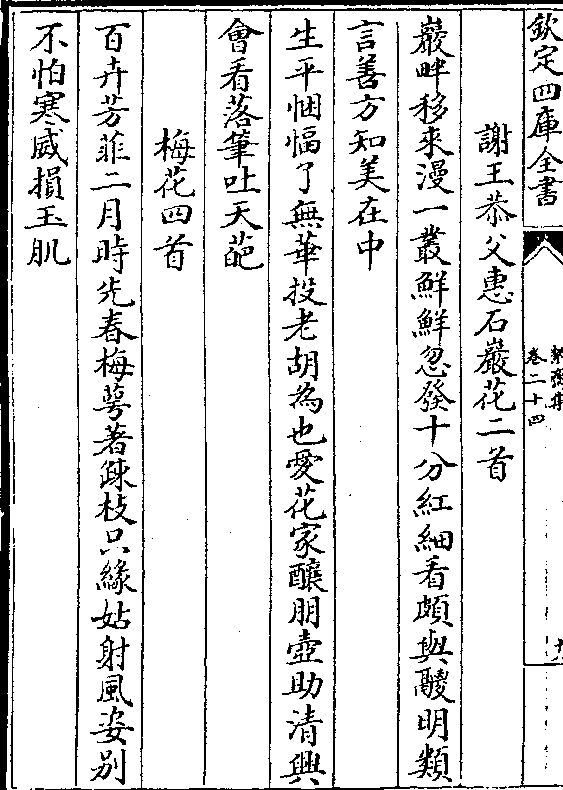 欽定四庫全書
絜齋集
卷二十四
謝王恭父惠石巖花二首
巖畔移來漫一叢鮮鮮忽發十分紅細看頗與鬷明類
言善方知美在中
生平悃愊了無華投老胡為也愛花家釀朋壺助清興
會看落筆吐天葩
梅花四首
百卉芳菲二月時先春梅萼著疎枝只緣姑射風姿别
不怕寒威損玉肌